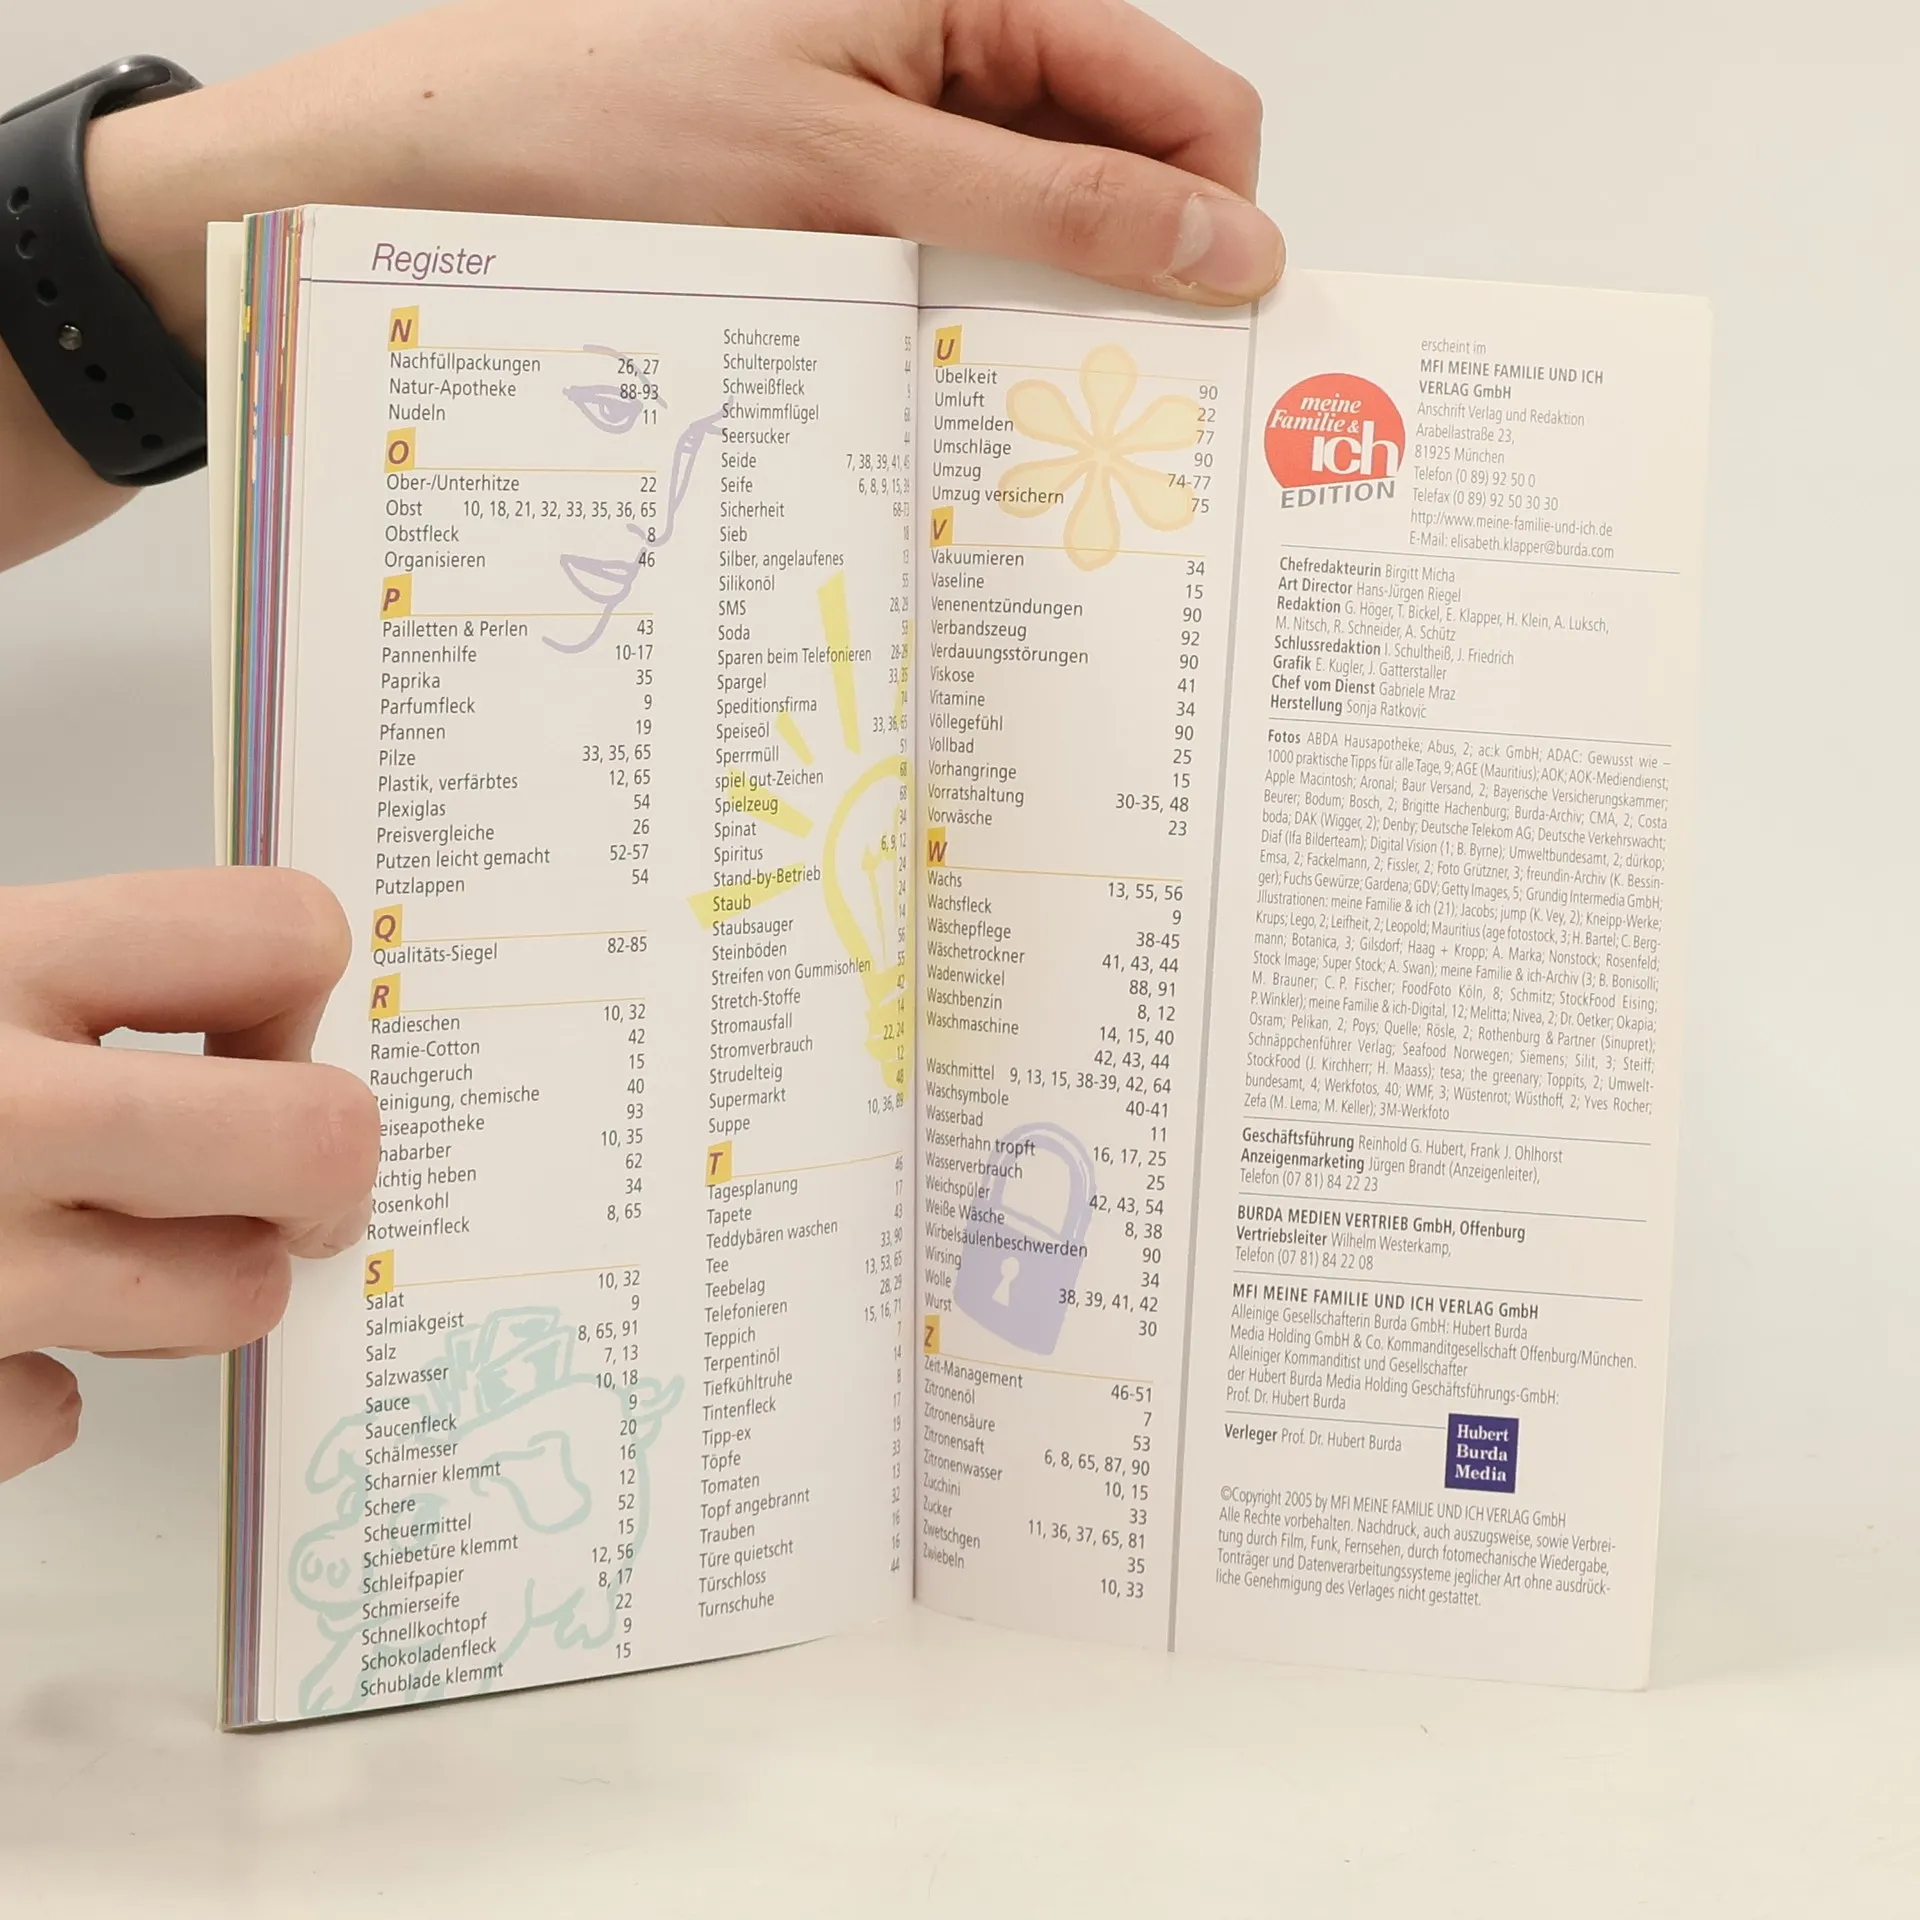 Register
N
Nachfüllpackungen 26, 27
Natur-Apotheke 88-93
Nudeln 11
O
Ober-/Unterhitze 22
Obst 10, 18, 21, 32, 33, 35, 36, 65
Obstfleck 8
Organisieren 46
P
Pailletten & Perlen 43
Pannenhilfe 10-17
Paprika 35
Parfumfleck 9
Pfannen 19
Pilze 33, 35, 65
Plastik, verfärbtes 12, 65
Plexiglas 54
Preisvergleiche 26
Putzen leicht gemacht 52-57
Putzlappen 54
Q
Qualitäts-Siegel 82-85
R
Radieschen 10, 32
Ramie-Cotton 42
Rauchgeruch 15
einigung, chemische 40
eiseapotheke 93
habarber 10, 35
ichtig heben 62
Rosenkohl 34
Rotweinfleck 8, 65
S
Salat 10, 32
Salmiakgeist 9
Salz 8, 65, 91
Salzwasser 7, 13
Sauce 10, 18
Saucenfleck 9
Schälmesser 20
Scharnier klemmt 16
Schere 12
Scheuermittel 52
Schiebetüre klemmt 15
Schleifpapier 12, 56
Schmierseife 8, 17
Schnellkochtopf 22
Schokoladenfleck 9
Schublade klemmt 15
Schuhcreme 55
Schulterpolster 44
Schweißfleck 9
Schwimmflügel 68
Seersucker 44
Seide 7, 38, 39, 41, 45
Seife 6, 8, 9, 15, 39
Sicherheit 68-73
Sieb 18
Silber, angelaufenes 13
Silikonöl 55
SMS 28, 29
Soda 53
Sparen beim Telefonieren 28-29
Spargel 33, 35
Speditionsfirma 74
Speiseöl 33, 36, 65
Sperrmüll 51
spiel gut-Zeichen 68
Spielzeug 68
Spinat 34
Spiritus 6, 9, 12
Stand-by-Betrieb 24
Staub 24
Staubsauger 14
Steinböden 56
Streifen von Gummisohlen 55
Stretch-Stoffe 42
Stromausfall 14
Stromverbrauch 22, 24
Strudelteig 12
Supermarkt 48
Suppe 10, 36, 89
T
Tagesplanung 46
Tapete 17
Teddybären waschen 43
Tee 33, 90
Teebelag 13, 53, 65
Telefonieren 28, 29
Teppich 15, 16, 71
Terpentinöl 7
Tiefkühltruhe 14
Tintenfleck 8
Tipp-ex 17
Töpfe 19
Tomaten 33
Topf angebrannt 13
Trauben 32
Türe quietscht 16
Türschloss 16
Turnschuhe 44
U
Übelkeit 90
Umluft 22
Ummelden 77
Umschläge 90
Umzug 74-77
Umzug versichern 75
V
Vakuumieren 34
Vaseline 15
Venenentzündungen 90
Verbandszeug 92
Verdauungsstörungen 90
Viskose 41
Vitamine 34
Völlegefühl 90
Vollbad 25
Vorhangringe 15
Vorratshaltung 30-35, 48
Vorwäsche 23
W
Wachs 13, 55, 56
Wachsfleck 9
Wäschepflege 38-45
Wäschetrockner 41, 43, 44
Wadenwickel 88, 91
Waschbenzin 8, 12
Waschmaschine 14, 15, 40
42, 43, 44
Waschmittel 9, 13, 15, 38-39, 42, 64
Waschsymbole 40-41
Wasserbad 11
Wasserhahn tropft 16, 17, 25
Wasserverbrauch 25
Weichspüler 42, 43, 54
Weiße Wäsche 8, 38
Wirbelsäulenbeschwerden 90
Wirsing 34
Wolle 38, 39, 41, 42
Wurst 30
Z
Zeit-Management 46-51
Zitronenöl 7
Zitronensäure 53
Zitronensaft 6, 8, 65, 87, 90
Zitronenwasser 10, 15
Zucchini 33
Zucker 11, 36, 37, 65, 81
Zwetschgen 35
Zwiebeln 10, 33
meine
Familie &
ich
EDITION
erscheint im
MFI MEINE FAMILIE UND ICH
VERLAG GmbH
Anschrift Verlag und Redaktion
Arabellastraße 23,
81925 München
Telefon (0 89) 92 50 0
Telefax (0 89) 92 50 30 30
http://www.meine-familie-und-ich.de
E-Mail: elisabeth.klapper@burda.com
Chefredakteurin Birgitt Micha
Art Director Hans-Jürgen Riegel
Redaktion G. Höger, T. Bickel, E. Klapper, H. Klein, A. Luksch,
M. Nitsch, R. Schneider, A. Schütz
Schlussredaktion I. Schultheiß, J. Friedrich
Grafik E. Kugler, J. Gatterstaller
Chef vom Dienst Gabriele Mraz
Herstellung Sonja Ratkovic
Fotos ABDA Hausapotheke; Abus, 2; ac:k GmbH; ADAC: Gewusst wie –
1000 praktische Tipps für alle Tage, 9; AGE (Mauritius); AOK; AOK-Mediendienst;
Apple Macintosh; Aronal; Baur Versand, 2; Bayerische Versicherungskammer;
Beurer; Bodum; Bosch, 2; Brigitte Hachenburg; Burda-Archiv; CMA, 2; Costa
boda; DAK (Wigger, 2); Denby; Deutsche Telekom AG; Deutsche Verkehrswacht;
Diaf (Ifa Bilderteam); Digital Vision (1; B. Byrne); Umweltbundesamt, 2; dürkop;
Emsa, 2; Fackelmann, 2; Fissler, 2; Foto Grützner, 3; freundin-Archiv (K. Bessin-
ger); Fuchs Gewürze; Gardena; GDV; Getty Images, 5; Grundig Intermedia GmbH;
Jllustrationen: meine Familie & ich (21); Jacobs; jump (K. Vey, 2); Kneipp-Werke;
Krups; Lego, 2; Leifheit, 2; Leopold; Mauritius (age fotostock, 3; H. Bartel; C. Berg-
mann; Botanica, 3; Gilsdorf; Haag + Kropp; A. Marka; Nonstock; Rosenfeld;
Stock Image; Super Stock; A. Swan); meine Familie & ich-Archiv (3; B. Bonisolli;
M. Brauner; C. P. Fischer; FoodFoto Köln, 8; Schmitz; StockFood Eising;
P. Winkler); meine Familie & ich-Digital, 12; Melitta; Nivea, 2; Dr. Oetker; Okapia;
Osram; Pelikan, 2; Poys; Quelle; Rösle, 2; Rothenburg & Partner (Sinupret);
Schnäppchenführer Verlag; Seafood Norwegen; Siemens; Silit, 3; Steiff;
StockFood (J. Kirchherr; H. Maass); tesa; the greenary; Toppits, 2; Umwelt-
bundesamt, 4; Werkfotos, 40; WMF, 3; Wüstenrot; Wüsthoff, 2; Yves Rocher;
Zefa (M. Lema; M. Keller); 3M-Werkfoto
Geschäftsführung Reinhold G. Hubert, Frank J. Ohlhorst
Anzeigenmarketing Jürgen Brandt (Anzeigenleiter),
Telefon (07 81) 84 22 23
BURDA MEDIEN VERTRIEB GmbH, Offenburg
Vertriebsleiter Wilhelm Westerkamp,
Telefon (07 81) 84 22 08
MFI MEINE FAMILIE UND ICH VERLAG GmbH
Alleinige Gesellschafterin Burda GmbH: Hubert Burda
Media Holding GmbH & Co. Kommanditgesellschaft Offenburg/München.
Alleiniger Kommanditist und Gesellschafter
der Hubert Burda Media Holding Geschäftsführungs-GmbH:
Prof. Dr. Hubert Burda
Verleger Prof. Dr. Hubert Burda
Hubert
Burda
Media
©Copyright 2005 by MFI MEINE FAMILIE UND ICH VERLAG GmbH
Alle Rechte vorbehalten. Nachdruck, auch auszugsweise, sowie Verbrei-
tung durch Film, Funk, Fernsehen, durch fotomechanische Wiedergabe,
Tonträger und Datenverarbeitungssysteme jeglicher Art ohne ausdrück-
liche Genehmigung des Verlages nicht gestattet.